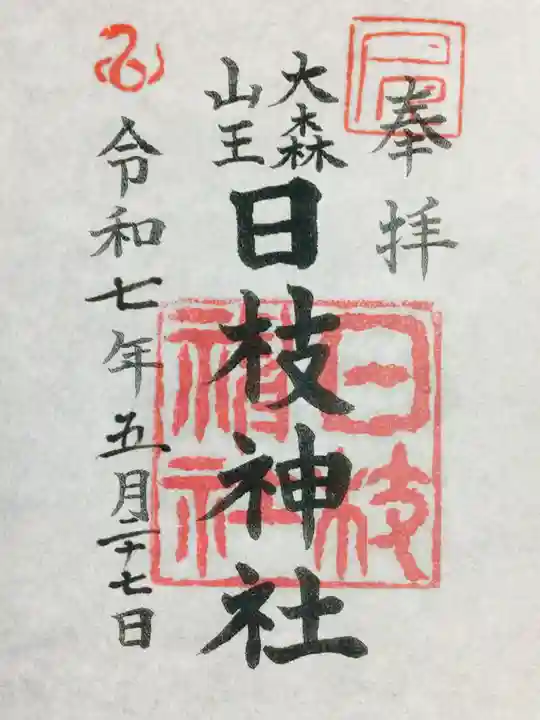 奉拝
大森
山王
日枝神社
令和七年五月二十七日
日枝
神社